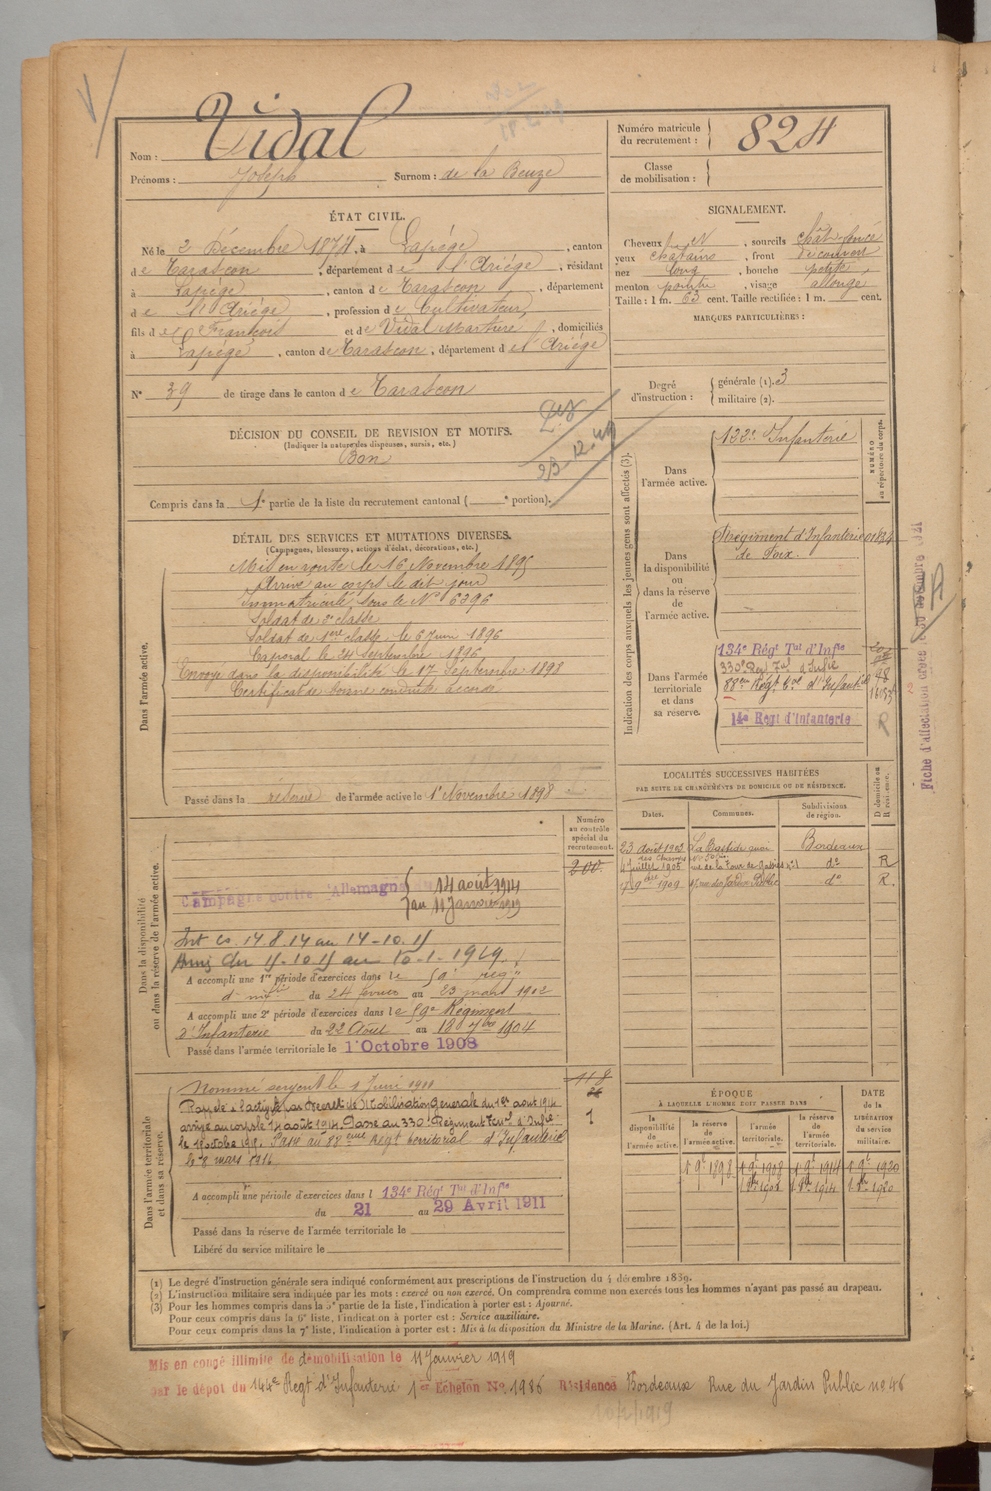 Nom : Vidal
Prénoms : Joseph Surnom : de la Beuze
Numéro matricule du recrutement : 824
Classe de mobilisation :
ÉTAT CIVIL.
Né le 2 Décembre 1874, à Lapège, canton
de Tarascon, département de l'Ariége, résidant
à Lapège, canton de Tarascon, département
de l'Ariége, profession de Cultivateur,
fils de François et de Vidal Marthe, domiciliés
à Lapège, canton de Tarascon, département de l'Ariége
N° 39 de tirage dans le canton de Tarascon
SIGNALEMENT.
Cheveux N, sourcils chât foncé
yeux châtains, front découvert
nez long, bouche petite,
menton pointu, visage allongé
Taille : 1 m. 63 cent. Taille rectifiée : 1 m. cent.
MARQUES PARTICULIÈRES :
Degré d'instruction : générale (1). 3
militaire (2).
DÉCISION DU CONSEIL DE REVISION ET MOTIFS.
(Indiquer la nature des dispenses, sursis, etc.)
Bon
Compris dans la 1e partie de la liste du recrutement cantonal ( e portion).
23-12-49
DÉTAIL DES SERVICES ET MUTATIONS DIVERSES.
(Campagnes, blessures, actions d'éclat, décorations, etc.)
Dans l'armée active.
Mis en route le 16 Novembre 1895
Arrivé au corps le dit jour
Immatriculé sous le N° 6396
Soldat de 2e classe
Soldat de 1ère classe le 6 Juin 1896
Caporal le 24 Septembre 1896
Envoyé dans la disponibilité le 17 Septembre 1898
Certificat de bonne conduite accordé
Passé dans la réserve de l'armée active le 1er Novembre 1898
Indication des corps auxquels les jeunes gens sont affectés (3).
Dans l'armée active.
122e Infanterie
NUMÉRO au répertoire du corps.
Dans la disponibilité ou dans la réserve de l'armée active.
Régiment d'Infanterie
de Foix.
Dans l'armée territoriale et dans sa réserve.
134e Régt Tal d'Infie
330e Reg Tal d'Infie
88em Régt d'Infant
144e Régt d'Infanterie
R
Fiche d'affectation
LOCALITÉS SUCCESSIVES HABITÉES
PAR SUITE DE CHANGEMENTS DE DOMICILE OU DE RÉSIDENCE.
Dates. Communes. Subdivisions de région. D domicile ou R résidence.
23 août 1903 La Bastide quai Bordeaux
4 Juillet 1905 rue de la Tour de Gassies n°1 do R
17 9bre 1909 rue du Jardin Public do R.
Dans la disponibilité ou dans la réserve de l'armée active.
Numéro au contrôle spécial du recrutement.
200
Campagne contre l'Allemagne
14 août 1914
au 11 Janvier 1919
Int Cs. 14.8.14 au 14-10.15
A accompli une 1re période d'exercices dans le 59e rég
d'infie du 24 février au 23 mars 1902
A accompli une 2e période d'exercices dans le 59e Régiment
d'Infanterie du 22 Août au 18 7bre 1904
Passé dans l'armée territoriale le 1er Octobre 1908
Dans l'armée territoriale et dans sa réserve.
Nommé sergent le 1 Juin 1911
Rappelé à l'activité par Décret de Mobilisation Générale du 1er août 1914
arrivé au corps le 14 août 1914. Passé au 330e Régiment Terral d'Infie
le 18 octobre Passé au 88eme Régt territorial d'Infanterie
le 8 mars 1916
118
26
1
A accompli une période d'exercices dans l 134e Régt Tal d'Infie
du 21 au 29 Avril 1911
Passé dans la réserve de l'armée territoriale le
Libéré du service militaire le
ÉPOQUE
À LAQUELLE L'HOMME DOIT PASSER DANS
la disponibilité de l'armée active. la réserve de l'armée active. l'armée territoriale. la réserve de l'armée territoriale. DATE de la LIBÉRATION du service militaire.
1 9e 1898 1 9e 1908 1 9e 1914 1 9e 1920
1 8e 1908 1 8e 1914 1 8e 1920
(1) Le degré d'instruction générale sera indiqué conformément aux prescriptions de l'instruction du 4 décembre 1889.
(2) L'instruction militaire sera indiquée par les mots : exercé ou non exercé. On comprendra comme non exercés tous les hommes n'ayant pas passé au drapeau.
(3) Pour les hommes compris dans la 5e partie de la liste, l'indication à porter est : Ajourné.
Pour ceux compris dans la 6e liste, l'indication à porter est : Service auxiliaire.
Pour ceux compris dans la 7e liste, l'indication à porter est : Mis à la disposition du Ministre de la Marine. (Art. 4 de la loi.)
Mis en congé illimité de démobilisation le 11 Janvier 1919
par le dépot du 144e Régt d'Infanterie 1er Echelon No. 1986 Résidence Bordeaux Rue du Jardin Public no 46